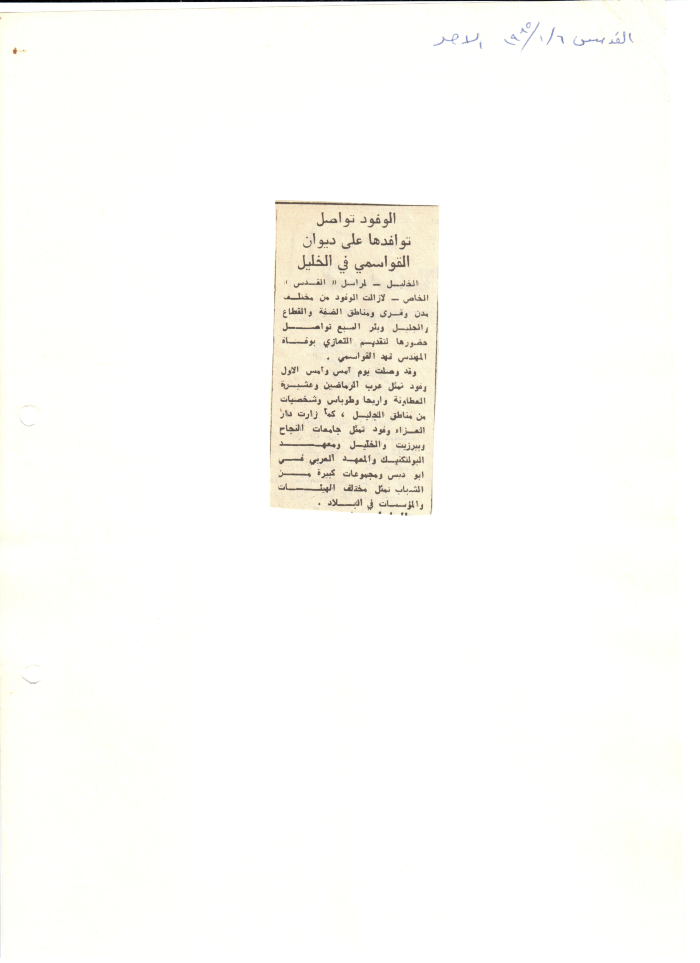 القدس ١٩٨٥/١/٦ الاحد
الوفود تواصل
توافدها على ديوان
القواسمي في الخليل
الخليل – لمراسل « القدس »
الخاص – لازالت الوفود من مختلف
مدن وقرى ومناطق الضفة والقطاع
والجليل وبئر السبع تواصل
حضورها لتقديم التعازي بوفاة
المهندس فهد القواسمي .
وقد وصلت يوم أمس وأمس الاول
وفود تمثل عرب الرماضين وعشيرة
العطاونة واريحا وطوباس وشخصيات
من مناطق الجليل ، كما زارت دار
العزاء وفود تمثل جامعات النجاح
وبيرزيت والخليل ومعهد
البولتكنيك والمعهد العربي في
ابو ديس ومجموعات كبيرة من
الشباب تمثل مختلف الهيئات
والمؤسسات في البلاد .